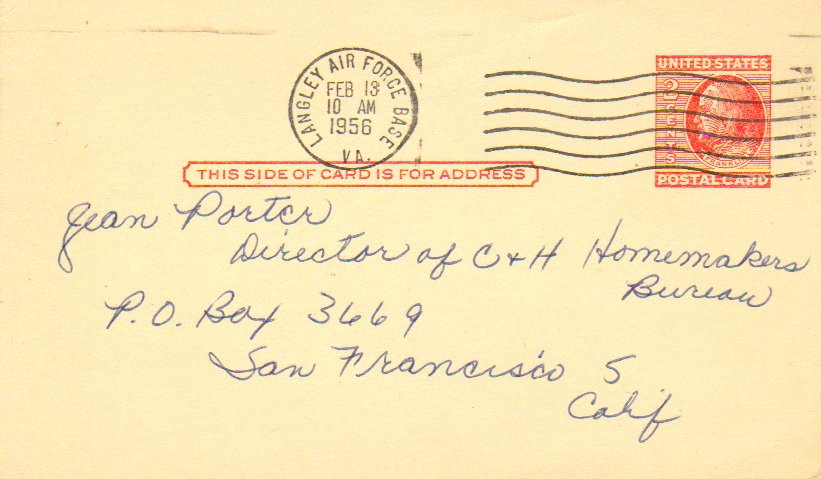 LANGLEY AIR FORCE BASE
FEB 13
10 AM
1956
VA.
UNITED STATES
2 CENTS
FRANKLIN
POSTAL CARD
THIS SIDE OF CARD IS FOR ADDRESS
Jean Porter
Director of C & H Homemakers
Bureau
P.O. Box 3669
San Francisco 5
Calif